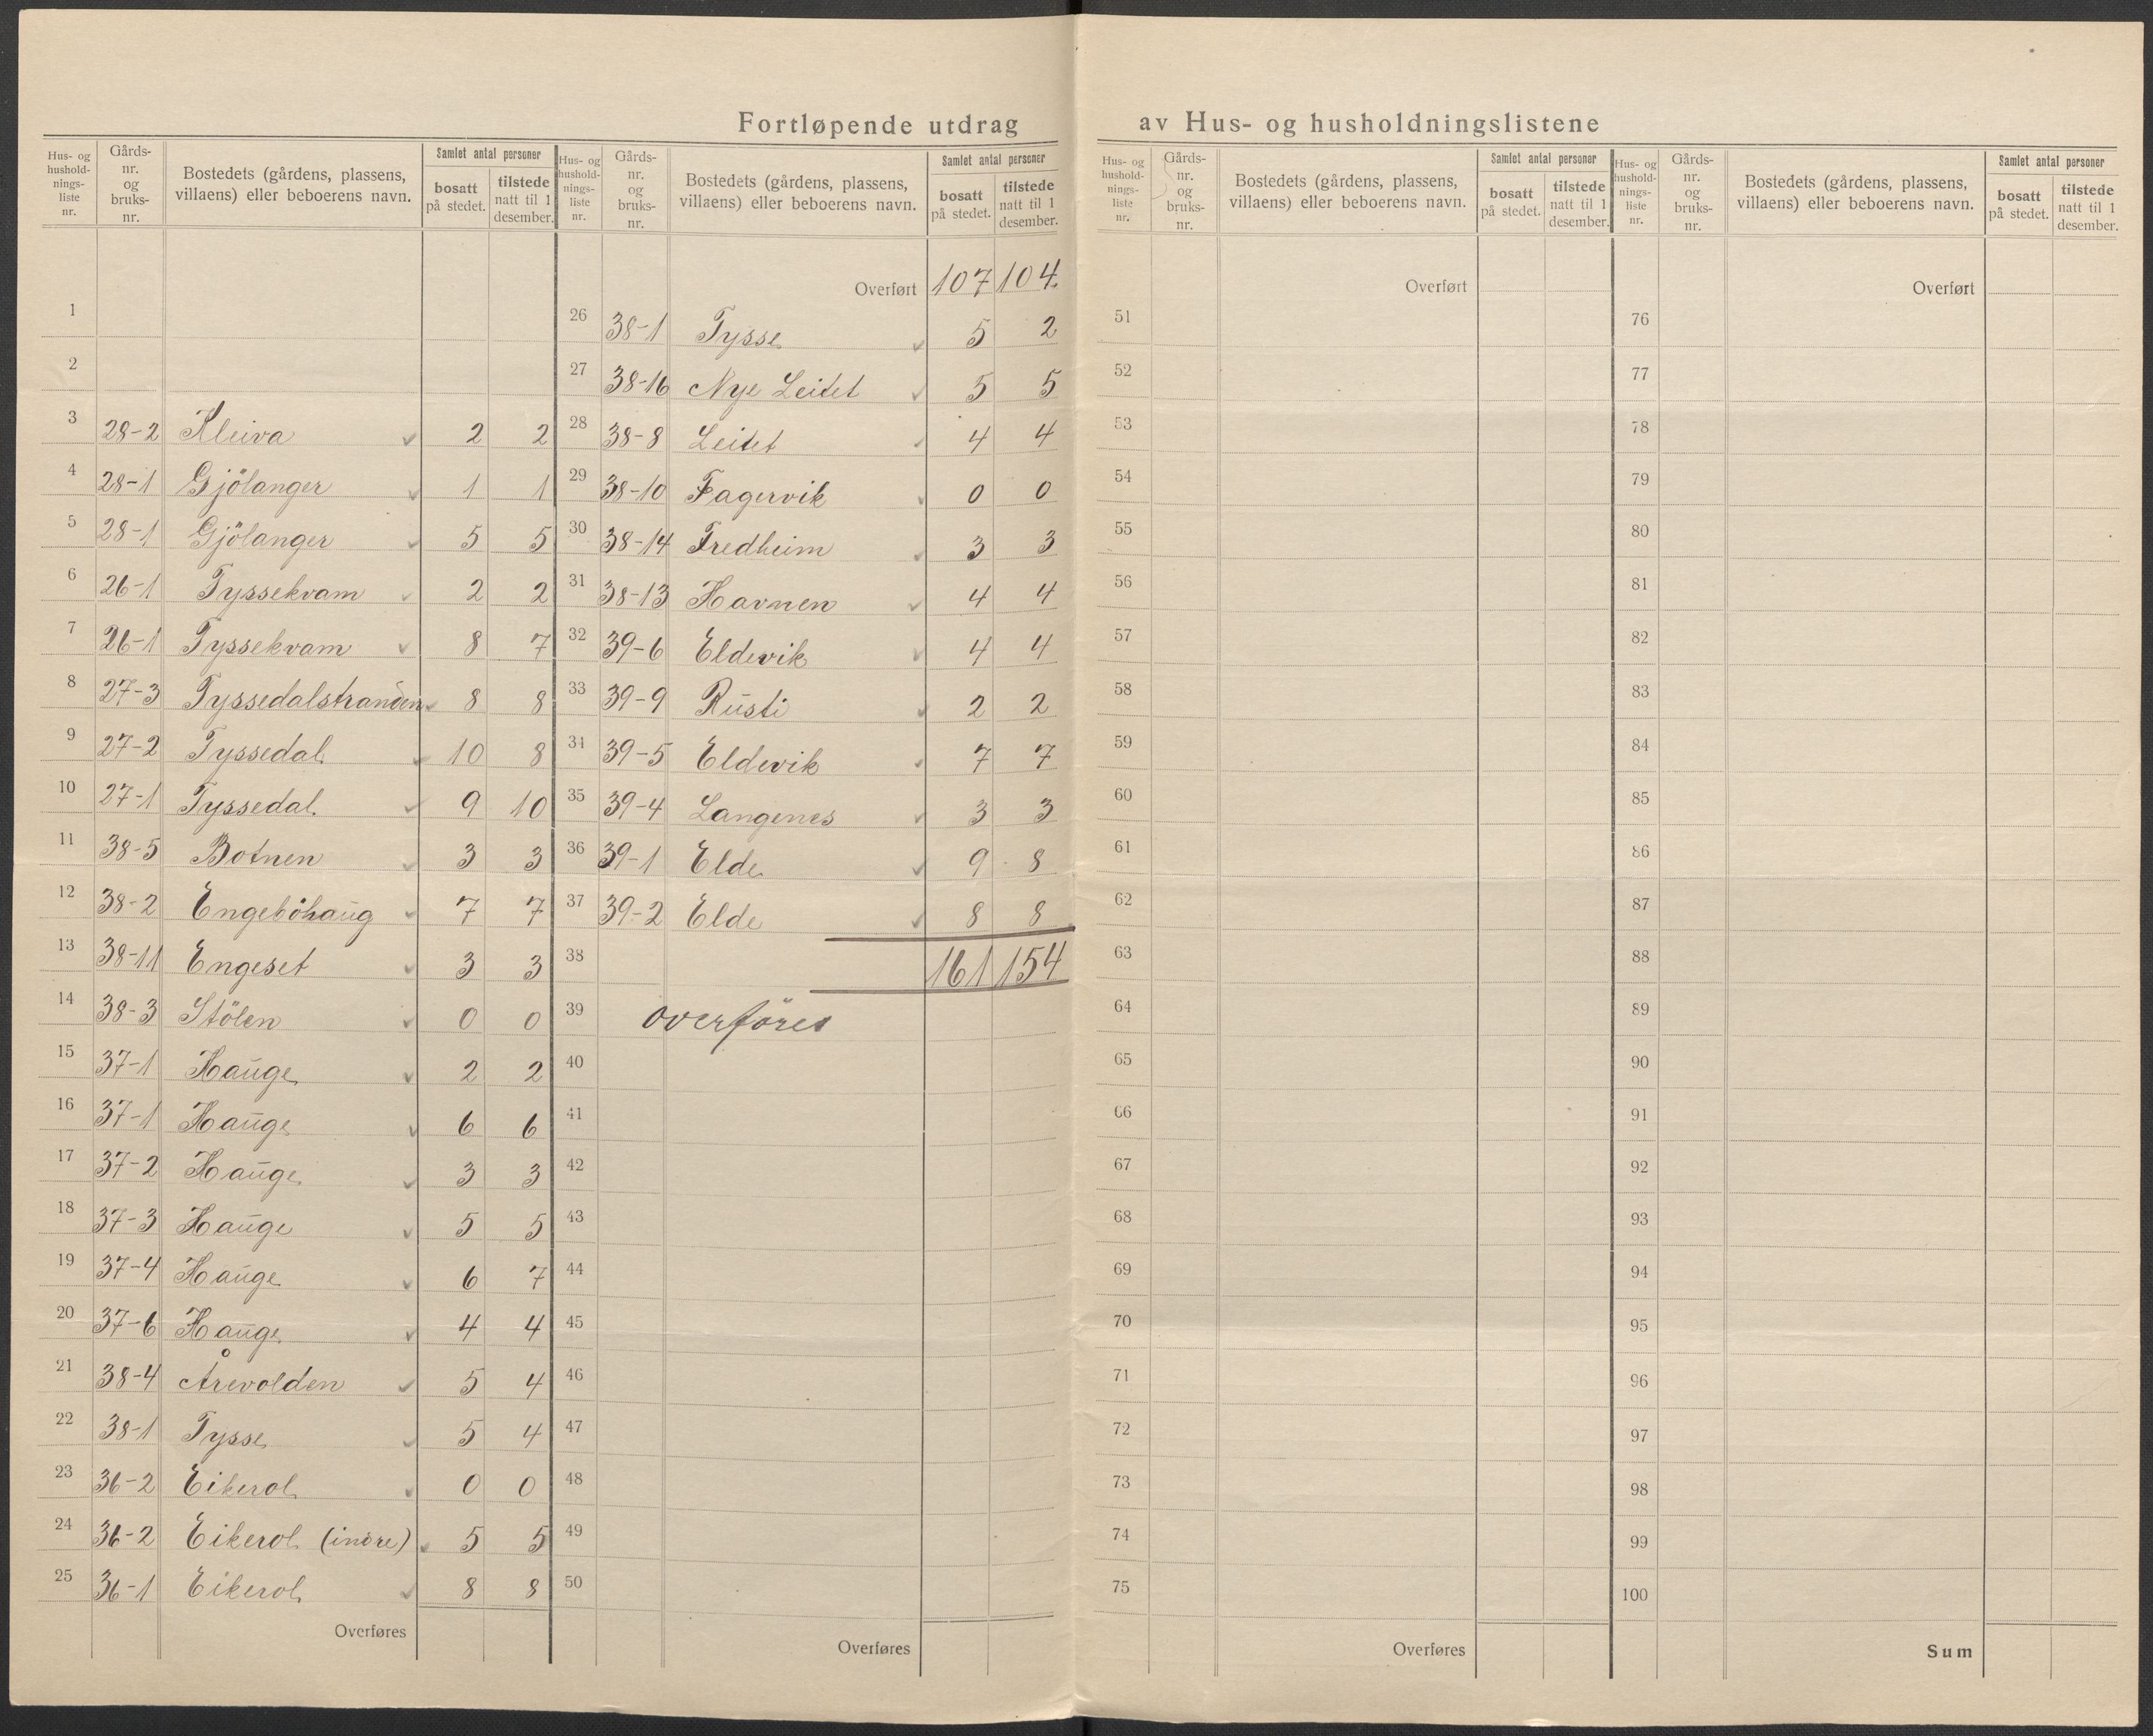 Fortløpende utdrag av Hus- og husholdningslistene
Hus- og hushold- nings- liste nr. Gårds- nr. og bruks- nr. Bostedets (gårdens, plassens, villaens) eller beboerens navn. Samlet antal personer bosatt på stedet. tilstede natt til 1 desember.
1
2
3 28-2 Kleiva 2 2
4 28-1 Gjölanger 1 1
5 28-1 Gjölanger 5 5
6 26-1 Tyssekvam 2 2
7 26-1 Tyssekvam 8 7
8 27-3 Tyssedalstranden 8 8
9 27-2 Tyssedal 10 8
10 27-1 Tyssedal 9 10
11 38-5 Botnen 3 3
12 38-2 Engeböhaug 7 7
13 38-11 Engeset 3 3
14 38-3 Stölen 0 0
15 37-1 Hauge 2 2
16 37-1 Hauge 6 6
17 37-2 Hauge 3 3
18 37-3 Hauge 5 5
19 37-4 Hauge 6 7
20 37-6 Hauge 4 4
21 38-4 Årevolden 5 4
22 38-1 Tysse 5 4
23 36-2 Eikerol 0 0
24 36-2 Eikerol (indre) 5 5
25 36-1 Eikerol 8 8
Overføres
Hus- og hushold- nings- liste nr. Gårds- nr. og bruks- nr. Bostedets (gårdens, plassens, villaens) eller beboerens navn. Samlet antal personer bosatt på stedet. tilstede natt til 1 desember.
Overført 107 104
26 38-1 Tysse 5 2
27 38-16 Nye Leitet 5 5
28 38-8 Leitet 4 4
29 38-10 Fagervik 0 0
30 38-14 Fredheim 3 3
31 38-13 Havnen 4 4
32 39-6 Eldevik 4 4
33 39-9 Rusti 2 2
34 39-5 Eldevik 7 7
35 39-4 Langenes 3 3
36 39-1 Elde 9 8
37 39-2 Elde 8 8
38 161 154
39 overföres
40
41
42
43
44
45
46
47
48
49
50
Overføres
Hus- og hushold- nings- liste nr. Gårds- nr. og bruks- nr. Bostedets (gårdens, plassens, villaens) eller beboerens navn. Samlet antal personer bosatt på stedet. tilstede natt til 1 desember.
Overført
51
52
53
54
55
56
57
58
59
60
61
62
63
64
65
66
67
68
69
70
71
72
73
74
75
Overføres
Hus- og hushold- nings- liste nr. Gårds- nr. og bruks- nr. Bostedets (gårdens, plassens, villaens) eller beboerens navn. Samlet antal personer bosatt på stedet. tilstede natt til 1 desember.
Overført
76
77
78
79
80
81
82
83
84
85
86
87
88
89
90
91
92
93
94
95
96
97
98
99
100
Sum